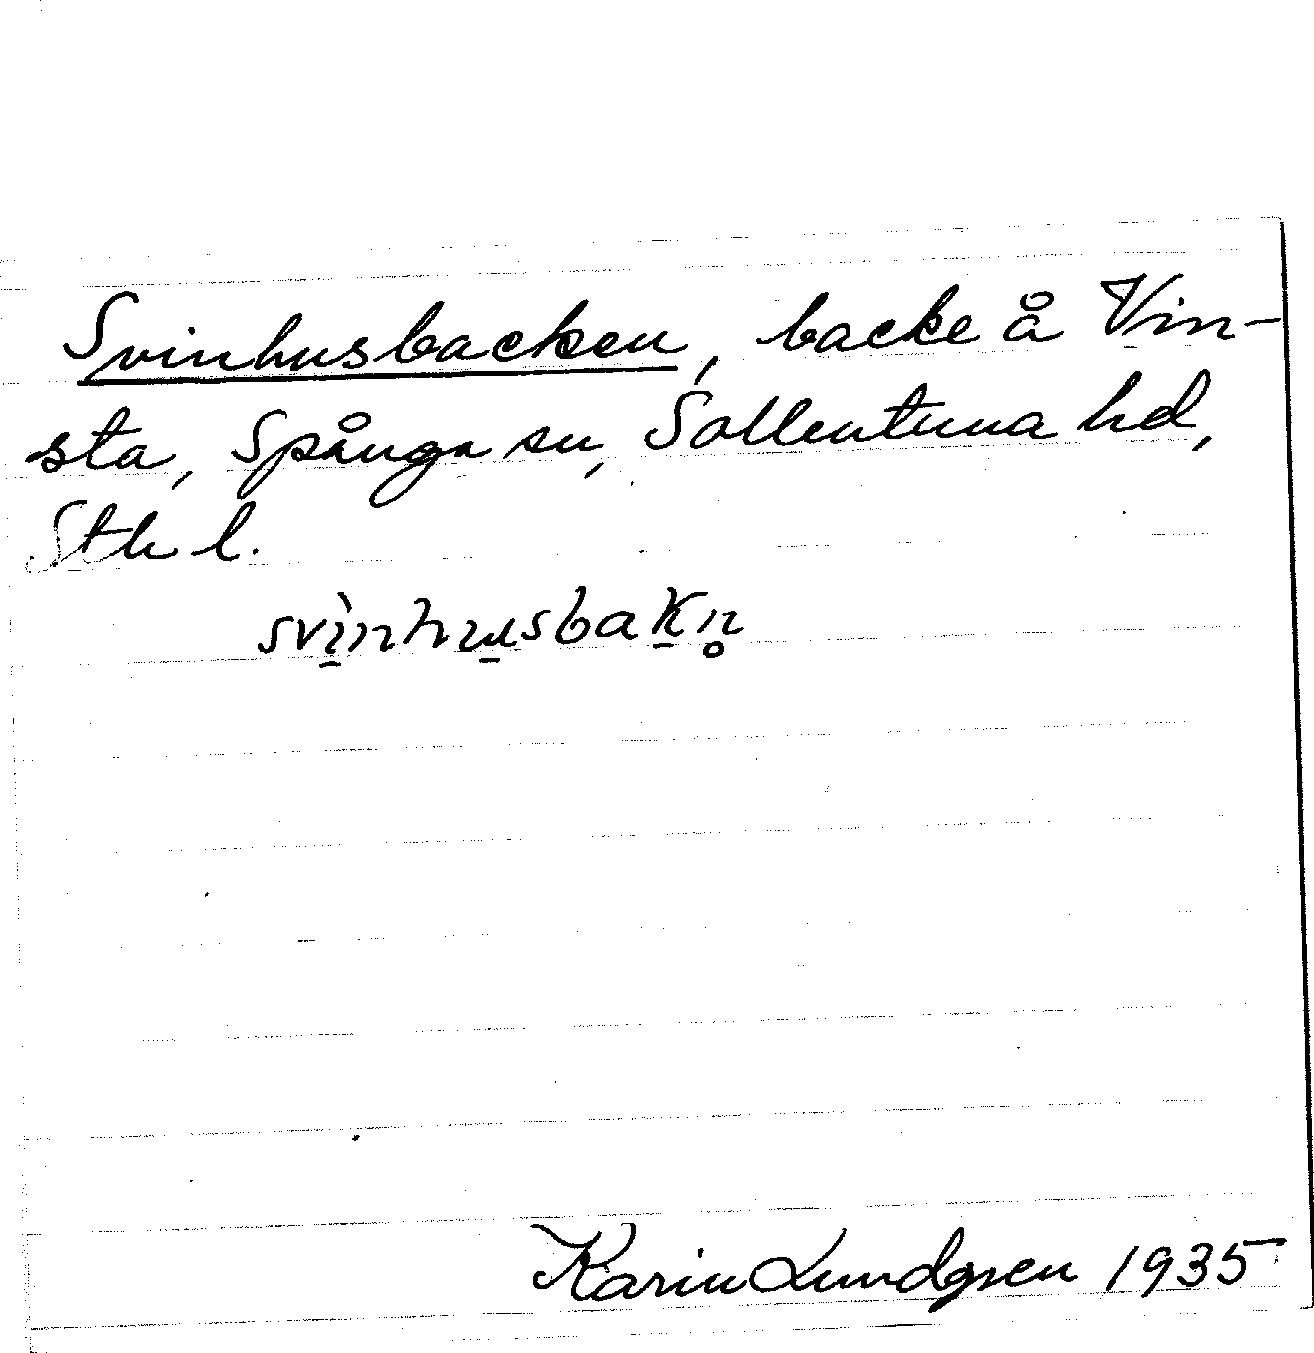 Svinhusbacken, backe å Vin-
sta, Spånga sn, Sollentuna hd,
Sth l.
svì̱nhu̱sbaḵn̥
Karin Lundgren 1935